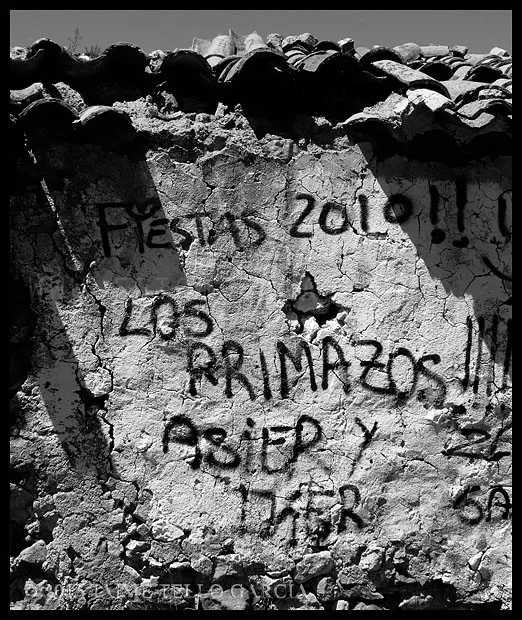 FiESTAS 2010!!
LOS
PRIMAZOS!!!
ASiER Y
IKER
SA
©2015 JAIME TELLO GARCIA